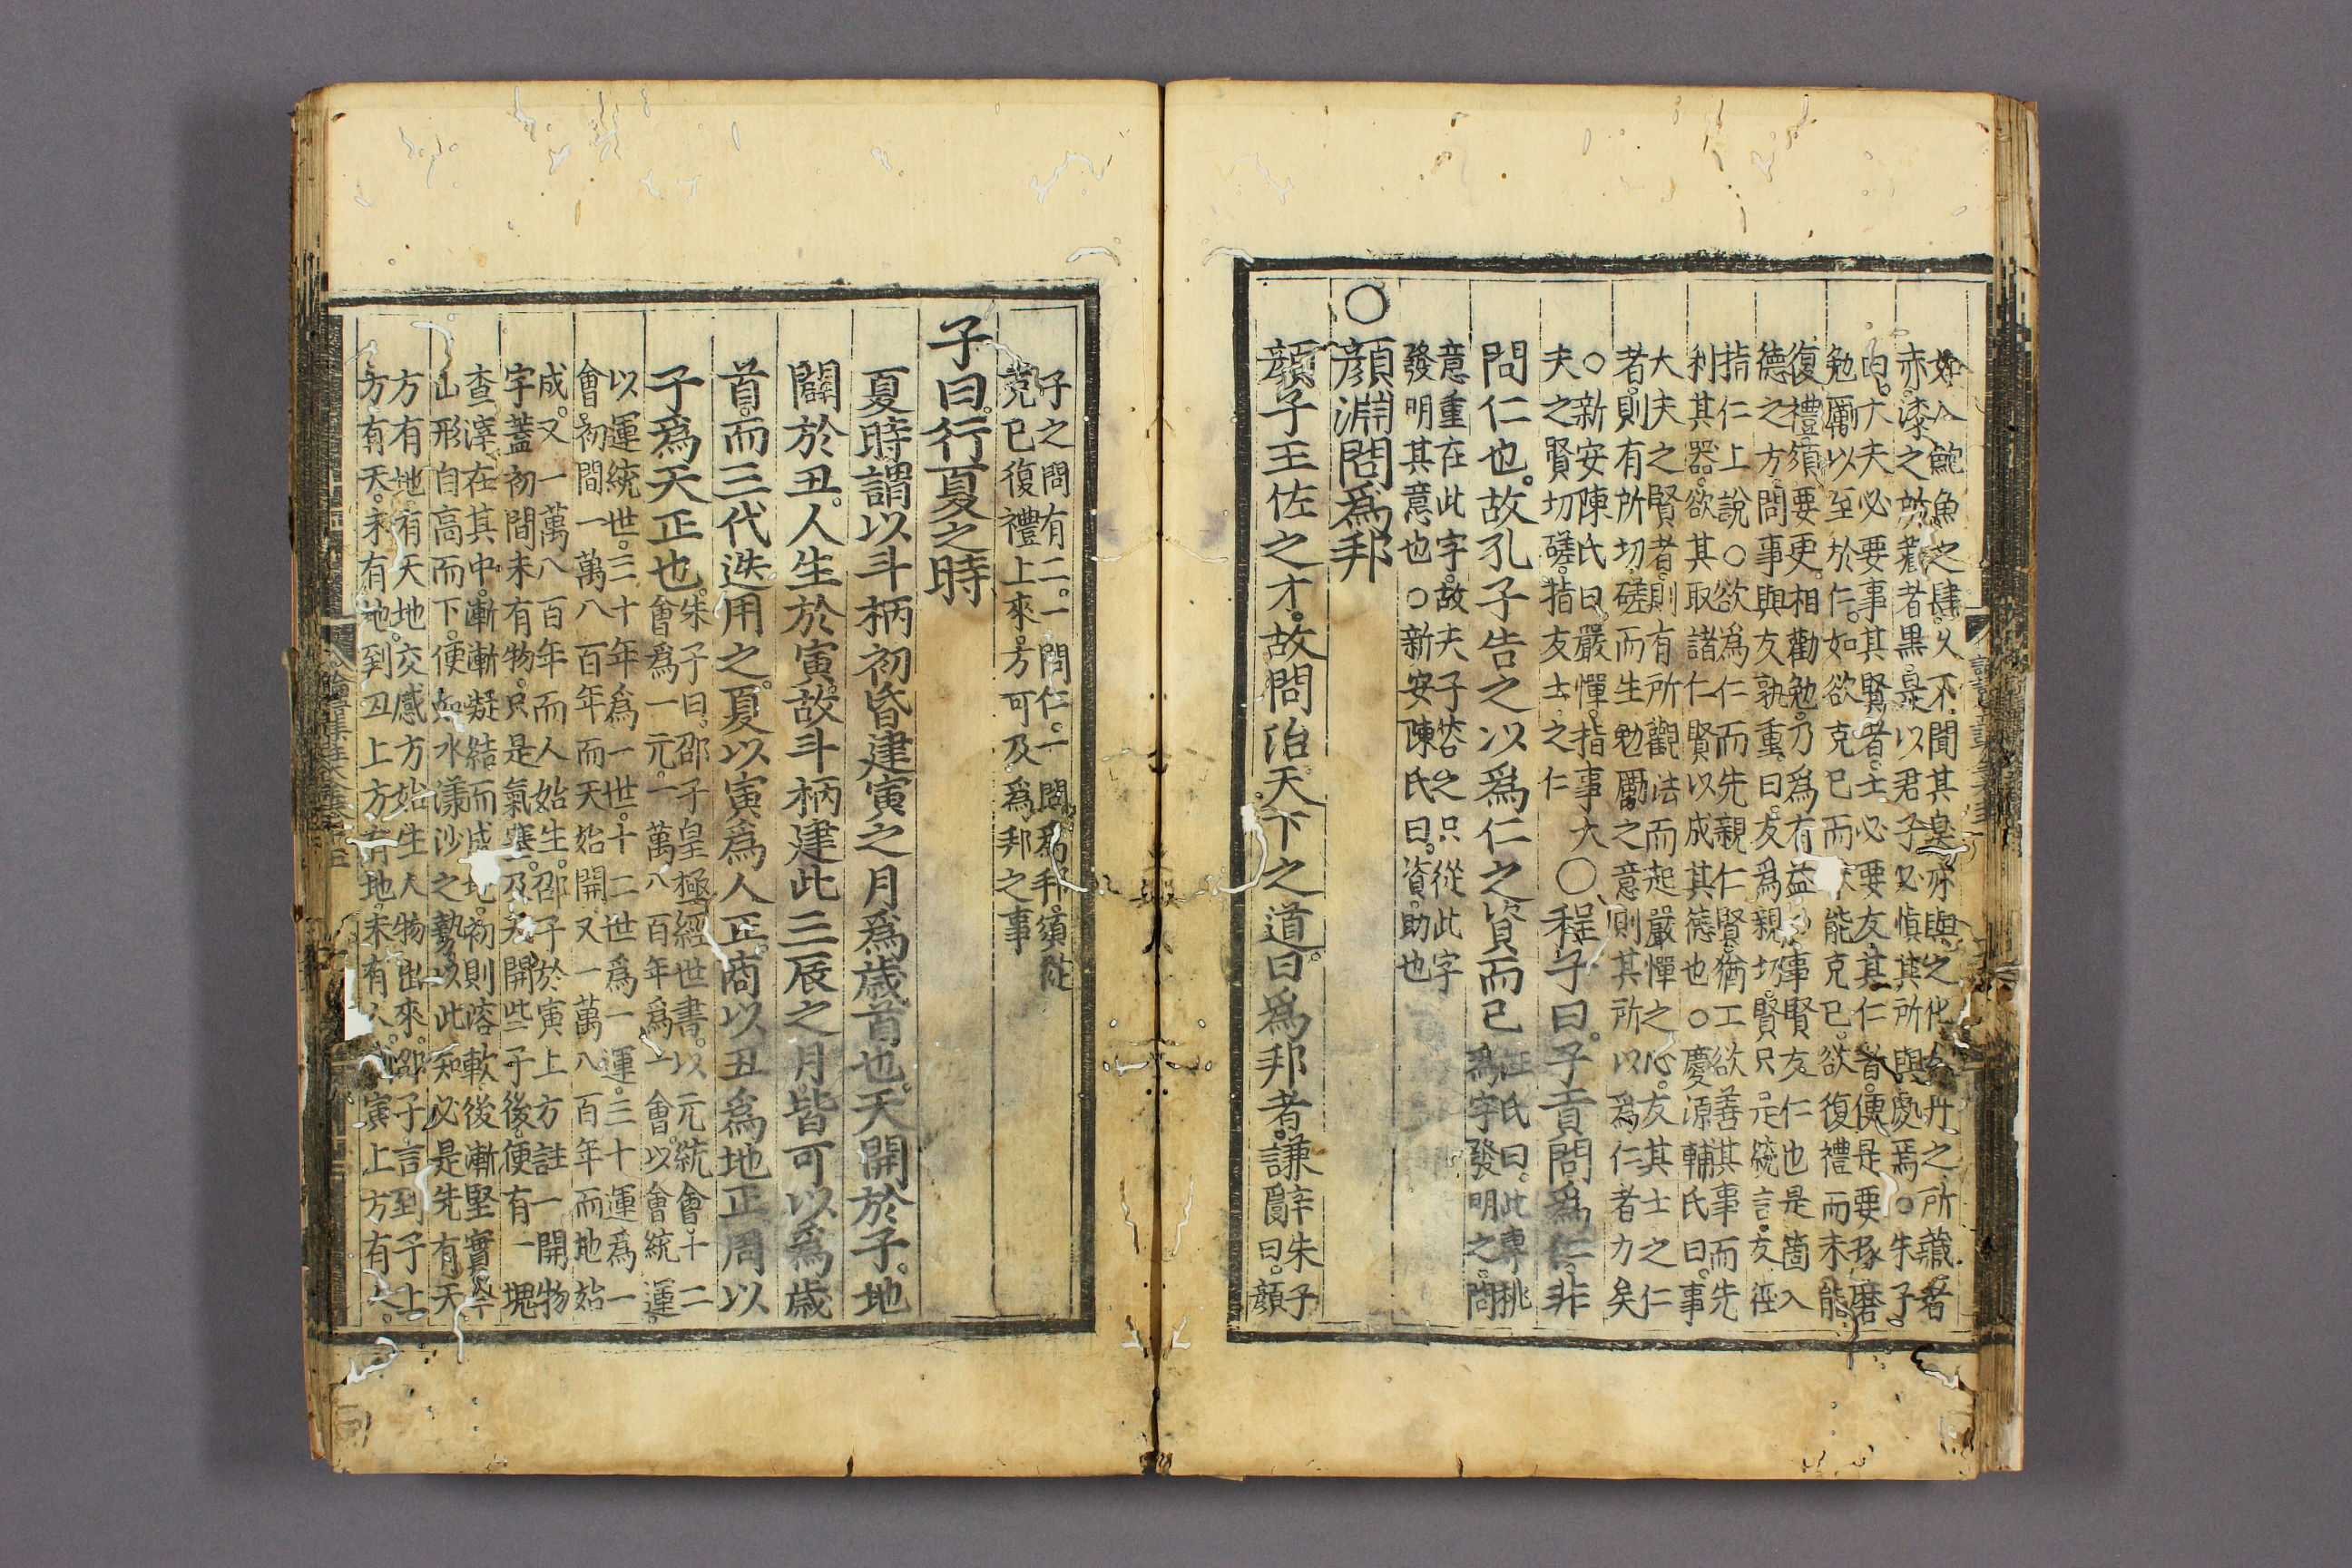 如入鮑魚之肆久不聞其臭亦與之化矣丹之所藏者
赤漆之所藏者黑是以君子必慎其所與處焉○朱子
曰大夫必要事其賢者士必要友其仁者便是要琢磨
勉厲以至於仁如欲克己而未能克己欲復禮而未能
復禮須要更相勸勉乃爲有益○事賢友仁也是箇入
德之方問事與友孰重曰友爲親切賢只是統言友徑
指仁上說○欲爲仁而先親仁賢猶工欲善其事而先
利其器欲其取諸仁賢以成其德也○慶源輔氏曰事
大夫之賢者則有所觀法而起嚴憚之心友其士之仁
者則有所切磋而生勉厲之意則其所以爲仁者力矣
○新安陳氏曰嚴憚指事大
夫之賢切磋指友士之仁
○程子曰子貢問爲仁非
問仁也故孔子告之以爲仁之資而已
汪氏曰此專挑
爲字發明之問
意重在此字故夫子答之只從此字
發明其意也○新安陳氏曰資助也
○顏淵問爲邦
顏子王佐之才故問治天下之道曰爲邦者謙辭
朱子
曰顏
子之問有二一問仁一問爲邦須從
克己復禮上來方可及爲邦之事
子曰行夏之時
夏時謂以斗柄初昏建寅之月爲歲首也天開於子地
闢於丑人生於寅故斗柄建此三辰之月皆可以爲歲
首而三代迭用之夏以寅爲人正商以丑爲地正周以
子爲天正也
朱子曰邵子皇極經世書以元統會十二
會爲一元一萬八百年爲一會以會統運
以運統世三十年爲一世十二世爲一運三十運爲一
會初間一萬八百年而天始開又一萬八百年而地始
成又一萬八百年而人始生邵子於寅上方註一開物
字蓋初間未有物只是氣塞及天開些子後便有一塊
查滓在其中漸漸凝結而成地初則溶軟後漸堅實今
山形自高而下便如水漾沙之勢以此知必是先有天
方有地有天地交感方始生人物出來邵子言到子上
方有天未有地到丑上方有地未有人到寅上方有人